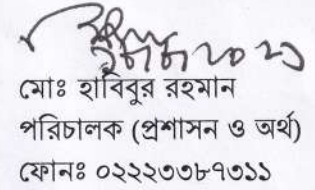 মোঃ হাবিবুর রহমান
পরিচালক (প্রশাসন ও অর্থ)
ফোনঃ ০২২২৩৩৮৭৩১১